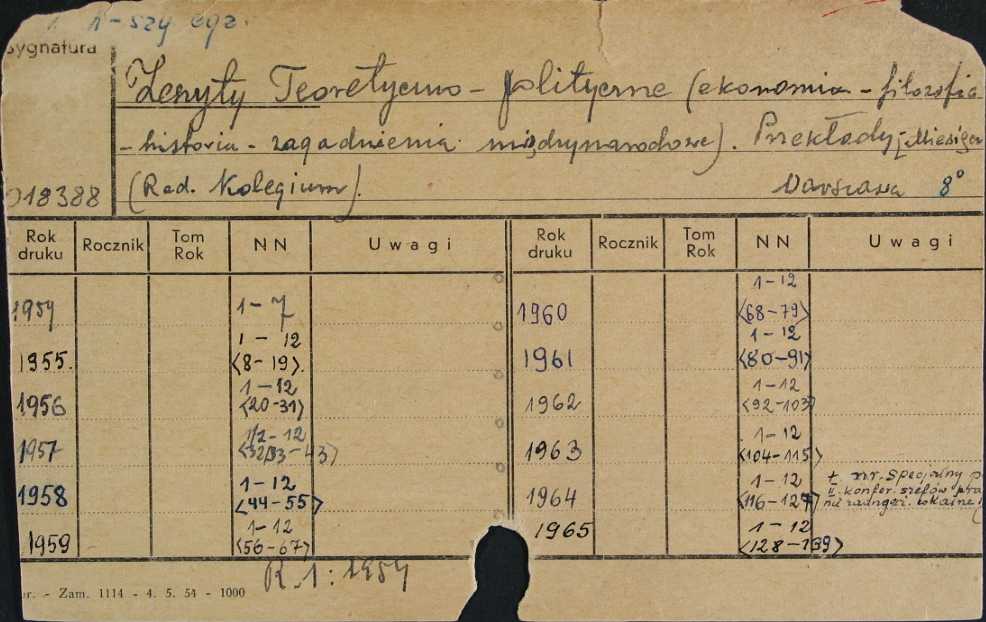 1-szy egz.
Sygnatura
Zeszyty Teoretyczno - polityczne (ekonomia - filozofia
- historia - zagadnienia międzynarodowe). Przekłady. Miesięcz
018388 (Red. Kolegium). Warszawa 8°
Rok druku Rocznik Tom Rok NN Uwagi Rok druku Rocznik Tom Rok NN Uwagi
1954 1-7 1960 1-12 <68-79>
1955. 1-12 <8-19> 1961 1-12 <80-91>
1956 1-12 <20-31> 1962 1-12 <92-103>
1957 1/2-12 <32/33-43> 1963 1-12 <104-115>
1958 1-12 <44-55> 1964 1-12 <116-127> + nr. Specjalny
II. konfer. szefów
1959 1-12 <56-67> 1965 1-12 <128-139>
R.1: 1954
- Zam. 1114 - 4. 5. 54 - 1000